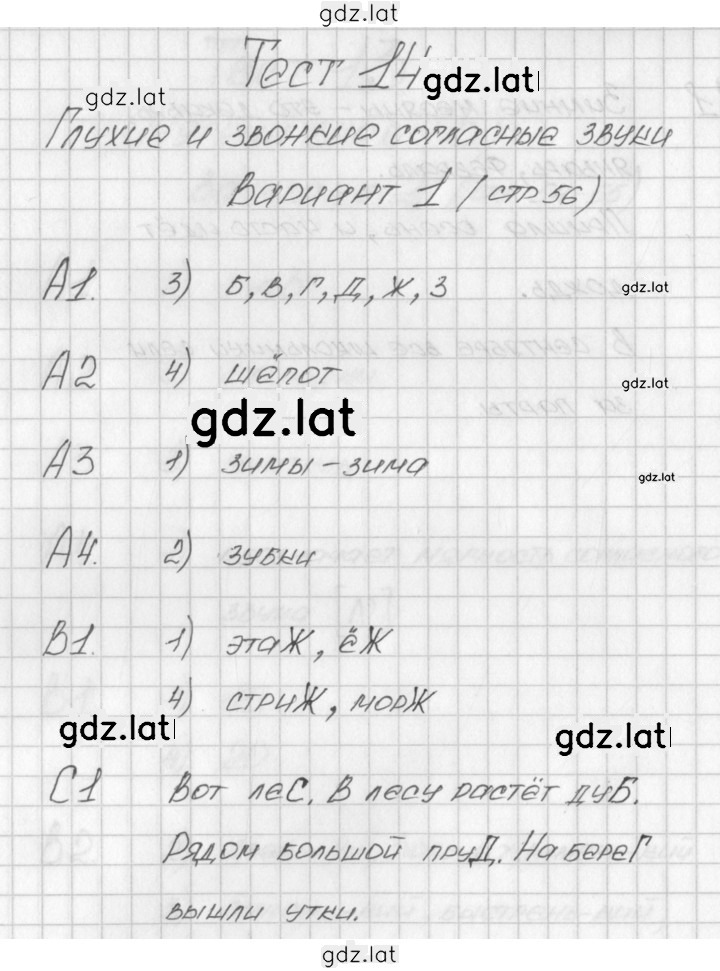 gdz.lat
Тест 14
gdz.lat
gdz.lat
Глухие и звонкие согласные звуки
Вариант 1 (стр 56)
А1. 3) Б, В, Г, Д, Ж, З
gdz.lat
А2 4) шёпот
gdz.lat
gdz.lat
А3 1) зимы - зима
gdz.lat
А4. 2) зубки
В1. 1) этаЖ, ёЖ
4) стриЖ, морЖ
gdz.lat
gdz.lat
С1 Вот леС. В лесу растёт дуБ.
Рядом большой пруД. На береГ
вышли утки.
gdz.lat